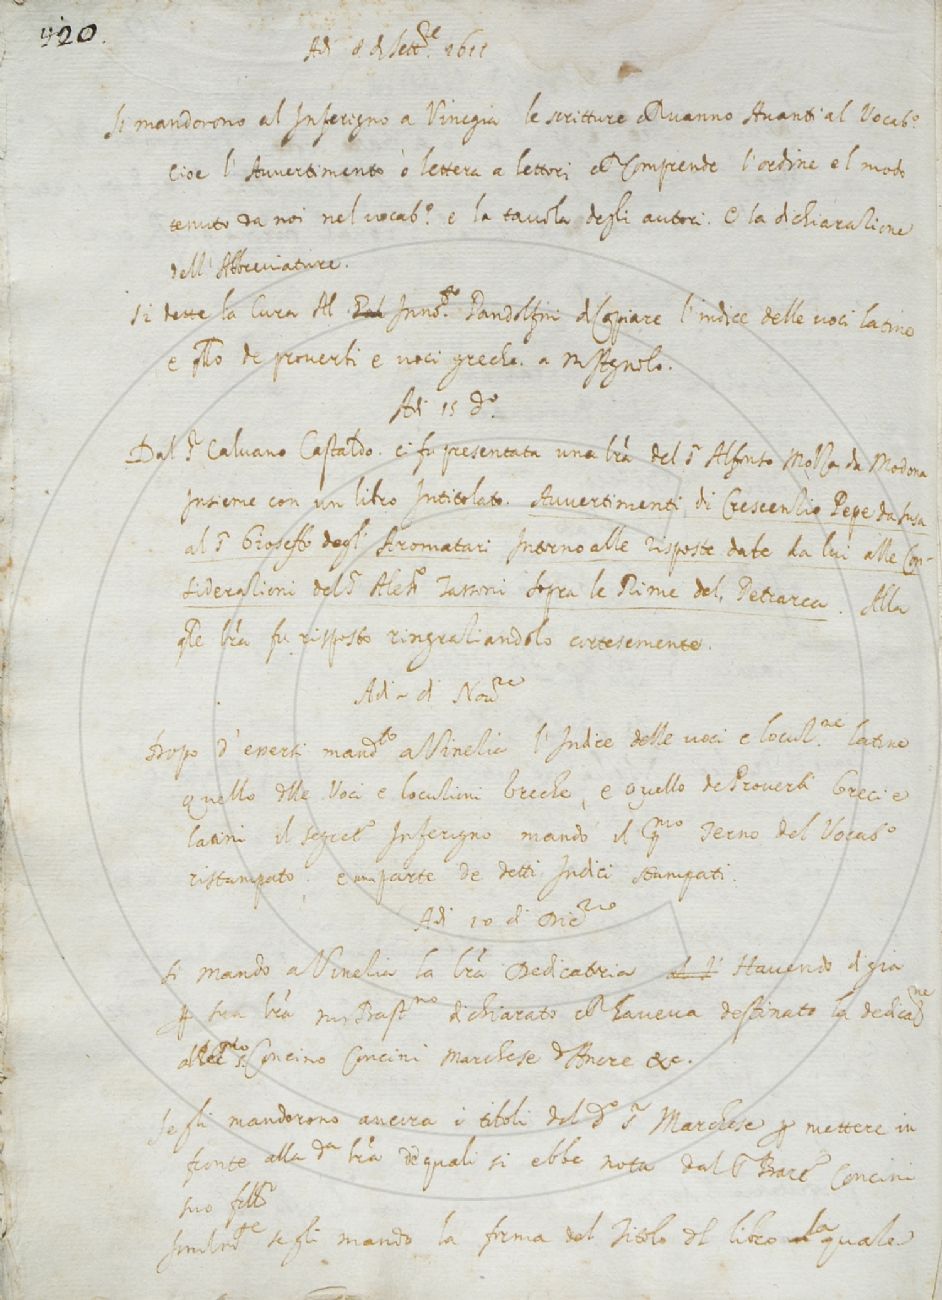 420.
Adi 8 di Sett.re 1611
Si mandorono al Inferigno a Vinegia le scritture ch vanno Avanti al Vocab.o
Cioe l'Avvertimento o lettera a lettori ch Comprende l'ordine e l modo
tenuto da noi nel vocab.o e la tavola degli autori. e la dichiarazione
dell'Abbreviature.
Si dette la Cura Al Inno.to Pandolfini di Copiare l'indice delle voci latine
e qllo de proverbi e voci greche. a
Adi 15 d.o
Dal S.r Calvano Castaldo. ci fu presentata una lra del S.r Alfonso da Modona
Insieme con un libro Intitolato. Avvertimenti di Crescenzio Pepe da Susa
al S.r Gioseffo degli Aromatari Intorno alle risposte date da lui alle Con-
siderazioni del S.r Aless.o Tassoni sopra le Rime del Petrarca. Alla
qle lra fu risposto ringraziandolo cortesemente.
Adi di Nov.re
Dopo d'eversi mand.to a Vinezia l'Indice delle voci e locuz.ne latine
quello dlle Voci e locuzioni Greche, e quello de Proverbi Greci e
latini il segret.o Inferigno mandò il p.mo Terno del Vocab.o
ristampato, e una parte de detti Indici stampati.
Adi 10 di Dic.re
Si mandò a Vinezia la lra Dedicatoria Havendo di gia
p sua lra Bast.no dichiarato ch haveva destinato la dedica.ne
Concino Concini Marchese d'Ancre &c.
Se gli mandorono ancora i titoli del d.o S.r Marchese p mettere in
fronte alla d.a lra de quali si ebbe nota dal S.r Concini
suo
se gli mandò la forma del Titolo dl libro la quale